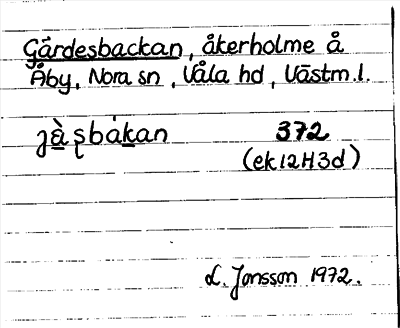 Gärdesbackan, åkerholme å
Åby, Nora sn, Våla hd, Västm.l.
jä̀ʂbákan 372
(ek 12H3d)
L. Jonsson 1972.